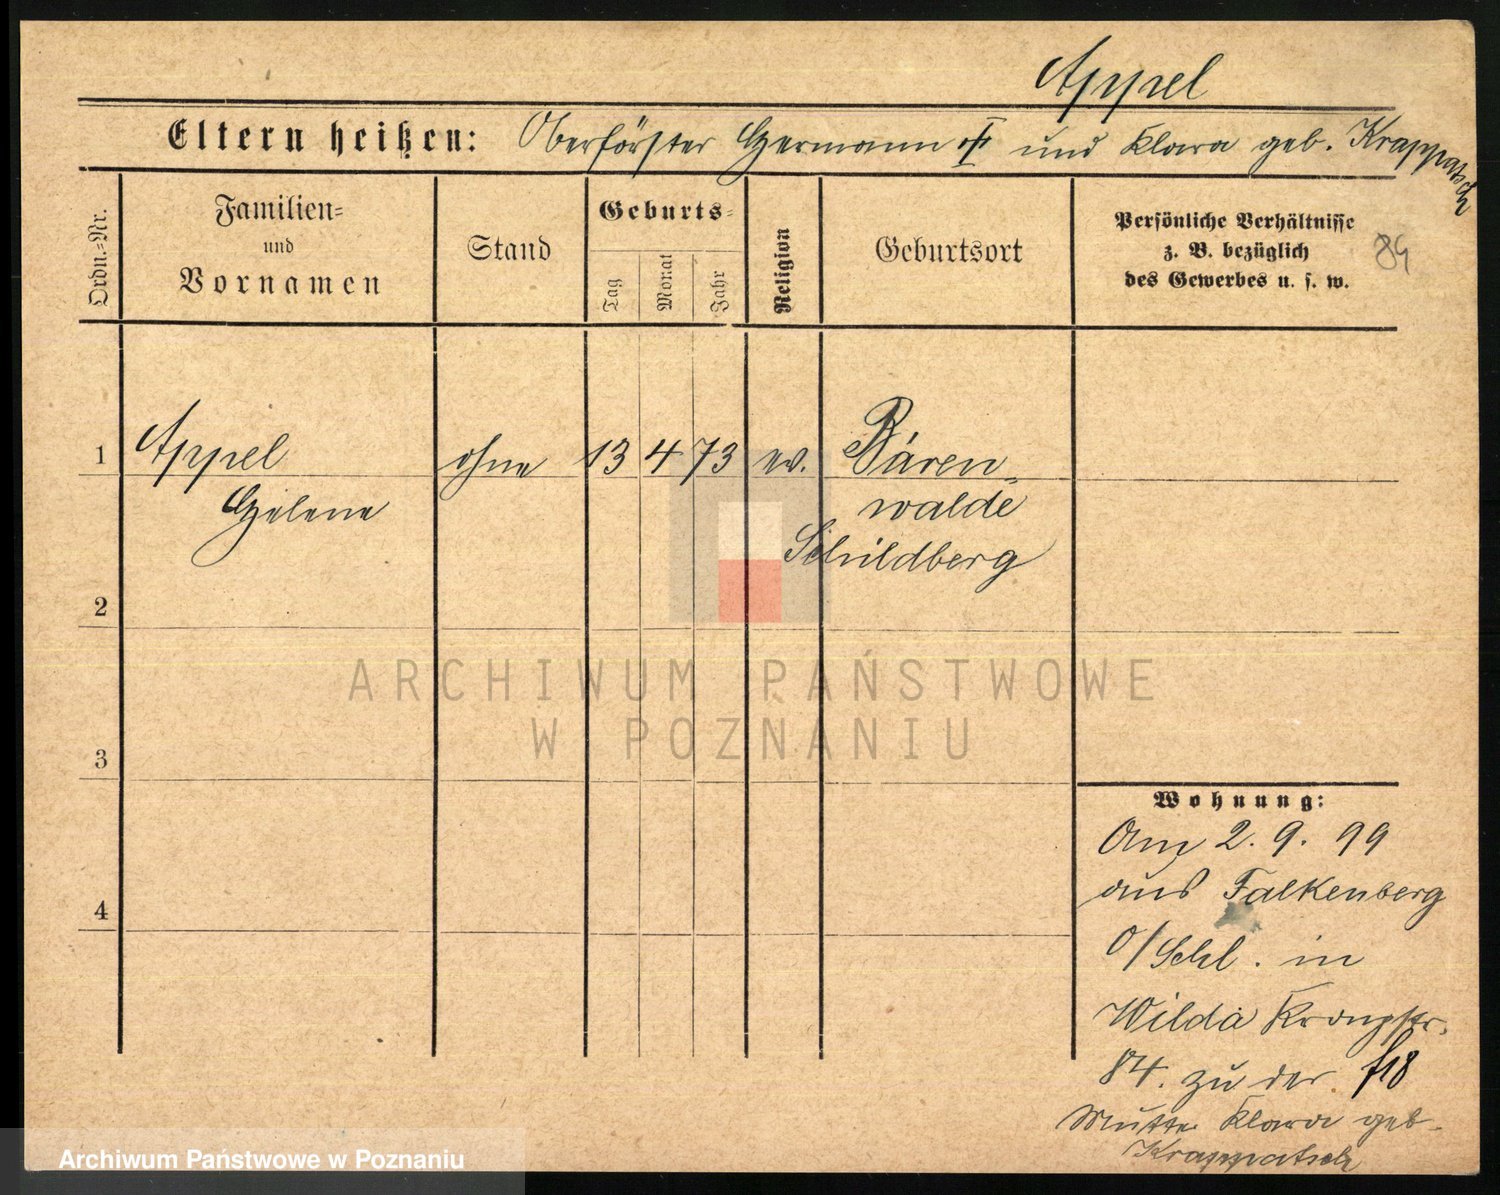 Appel
Eltern heißen: Oberförster Hermann † und Klara geb. Krappatsch
Ordn.-Nr.
Familien-
und
Vornamen
Stand
Geburts-
Tag
Monat
Jahr
Religion
Geburtsort
Persönliche Verhältnisse
z. B. bezüglich
des Gewerbes u. s. w.
84
1 Appel ohne 13 4 73 ev. Bären-
Helene walde
Schildberg
2
ARCHIWUM PAŃSTWOWE
W POZNANIU
3
Wohnung:
Am 2. 9. 99
aus Falkenberg
4
O/Schl. in
Wilda Kronpr.
84. zu der f18
Mutter Klara geb.
Krappatsch
Archiwum Państwowe w Poznaniu